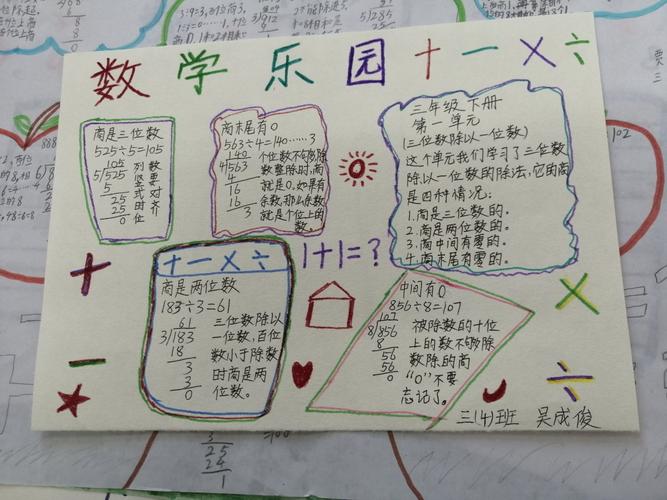 数学乐园十一×÷
商是三位数
525÷5=105
105
5/525
5
25
25
0
列竖式时
数要对齐
位
商末尾有0
563÷4=140……3
140
4/563
4
16
16
3
个位数不够除
数整除时,商
就是0,如果有
余数,那么余数
就是个位上的
数。
三年级下册
第一单元
(三位数除以一位数)
这个单元我们学习了三位数
除以一位数的除法,它的商
是四种情况:
1.商是三位数的。
2.商是两位数的。
3.商中间有零的。
4.商末尾有零的。
+
1+1=?
×
+一×÷
商是两位数
183÷3=61
61
3/183
18
3
3
0
三位数除以
一位数,百位
数小于除数
时商是两
位数。
中间有0
856÷8=107
107
8/856
8
56
56
0
被除数的十位
上的数不够除
数除的商
“0”不要
忘记了。
−
÷
三(4)班 吴成俊